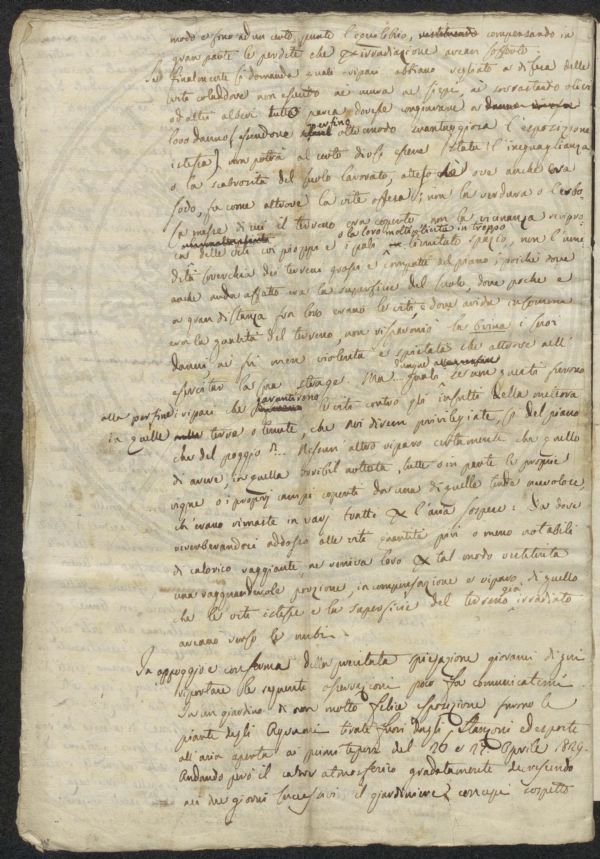 modo e sino ad un certo punto l'equilibrio, restituendo compensando in
gran parte le perdite che per irradiazione avean sofferto.
Se finalmente si domanda quale riparo abbiano vegliato a difesa delle
viti colà dove non essendo nè mura nè siepi, nè sovrastando olivi
od altri alberi tutto parea dovesse congiurare a danno
loro danno (essendone perfino oltremodo svantaggiosa l'esposizione
istessa) non potrà al certo dirsi essere stata l'ineguaglianza
o la scabrosità del suolo lavorato, attesochè ove anche era
sodo, fu come altrove la vite offesa; non la verdura o l'erbo-
sa messe di cui il terreno era coperto, non la vicinanza recipro-
ca delle viti coi pioppi e i pali o la loro moltiplicità in troppo limitato spazio, non l'umi-
dità soverchia dei terreni grassi e compatti nel piano; poichè dove
anche nuda affatto era la superficie del suolo, dove poche e
a gran distanza fra loro erano le viti, e dove arida insomma
era la qualità del terreno, non risparmiò la brina i suoi
danni nè fu men violenta e spietata che altrove nell'
esercitar la sua strage. Ma... quali dunque e di qual sorte furono
alla perfine i ripari che garantirono le viti contro gli insulti della meteora
in quelle terre o tenute, che noi direm privilegiate, sì del piano
che del poggio?... Nessun altro riparo certamente che quello
di avere, in quella orribil nottata, tutte o in parte le proprie
vigne o i proprj campi coperti da una di quelle tende nuvolose,
ch'erano rimaste in varj tratti per l'aria sospese: Da dove
riverberandosi addosso alle viti quantità più o meno notabili
di calorico raggiante, ne veniva loro per tal modo restituita
una ragguardevole porzione, in compensazione o riparo di quello
che le viti istesse e la superficie del terreno già irradiato
aveano verso le nubi.
In appoggio e conferma della precitata spiegazione giovami di qui
riportare le seguenti osservazioni poco fa comunicatemi.
In un giardino di non molto felice esposizione furono le
piante degli Agrumi tirate fuori dagli Stanzoni ed esposte
all'aria aperta ai primi tepori del 26 e 27 Aprile 1829.
Andando però il calor atmosferico gradatamente decrescendo
nei due giorni successivi il giardiniere concepì sospetto